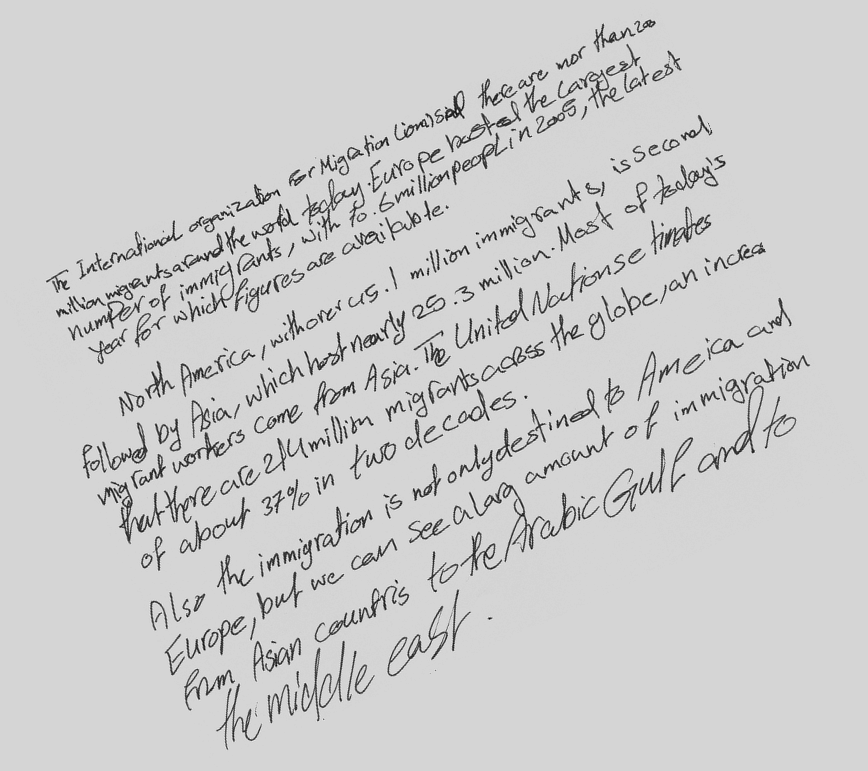 The International organization For Migration (iom) said there are mor than 200
million migrants around the world today. Europe hosted the largest
number of immigrants, with 70.6 million peopl in 2005, the latest
year for which figures are available.
North America, with over 45.1 million immigrants, is second,
followed by Asia, which host nearly 25.3 million. Most of today's
migrant workers come from Asia. The United Nations e timates
that there are 214 million migrants across the globe, an increa
of about 37% in two decades.
Also the immigration is not only destined to Ameica and
Europe, but we can see a larg amount of immigration
from Asian countris to the Arabic Gulf and to
the middle east.